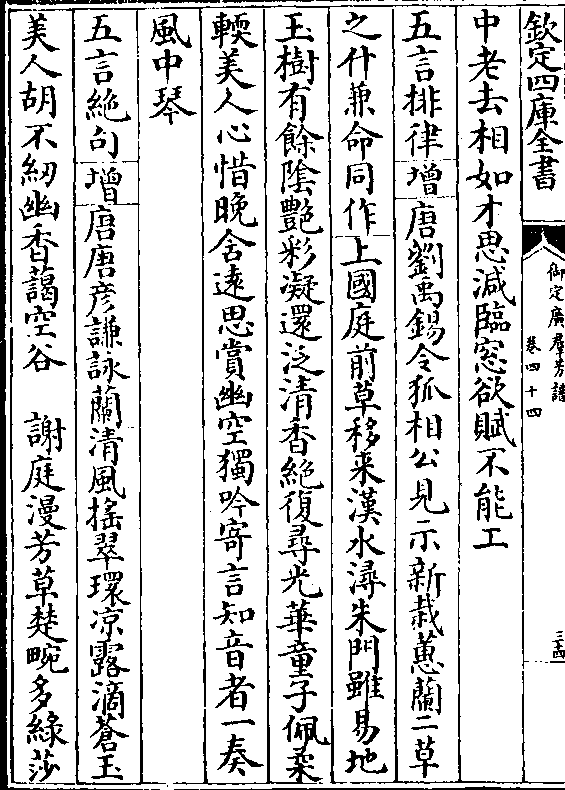 欽定四庫全書
御定廣羣芳譜
卷四十四
三十四
中老去相如才思減臨窓欲賦不能工
五言排律增唐劉禹錫令狐相公見示新栽蕙蘭二草
之什兼命同作上國庭前草移来漢水潯朱門雖易地
玉樹有餘陰艷彩凝還泛清香絶復尋光華童子佩柔
輭美人心惜晚含遠思賞幽空獨吟寄言知音者一奏
風中琴
五言絶句增唐唐彦謙詠蘭清風揺翠環凉露滴蒼玉
美人胡不紉幽香藹空谷　謝庭漫芳草楚畹多綠莎